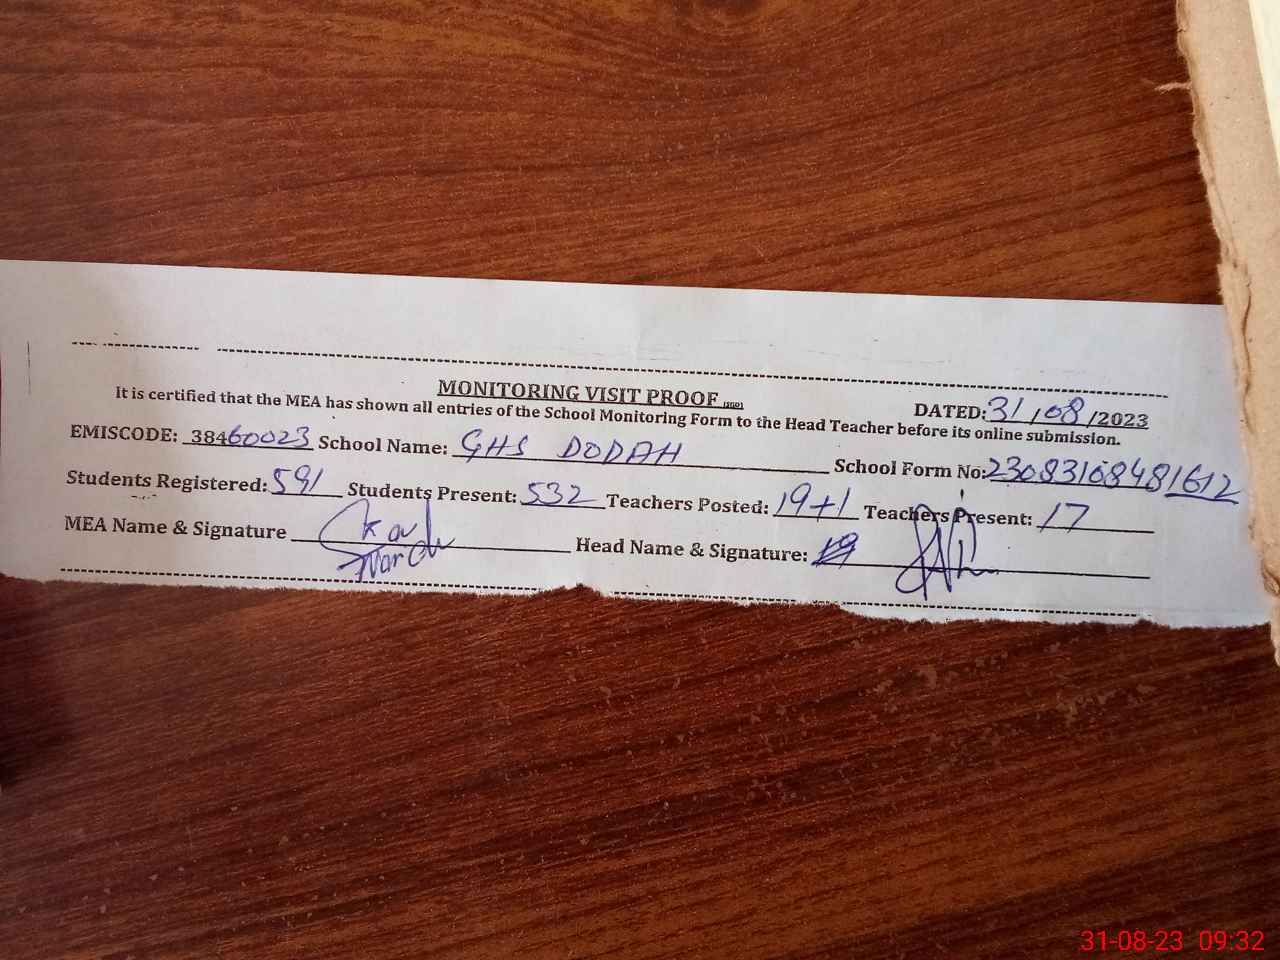 MONITORING VISIT PROOF
DATED: 31/08/2023
It is certified that the MEA has shown all entries of the School Monitoring Form to the Head Teacher before its online submission.
EMISCODE: 38460023 School Name: GHS DODAH School Form No: 23083108481612
Students Registered: 591 Students Present: 532 Teachers Posted: 19+1 Teachers Present: 17
MEA Name & Signature Head Name & Signature:
31-08-23 09:32